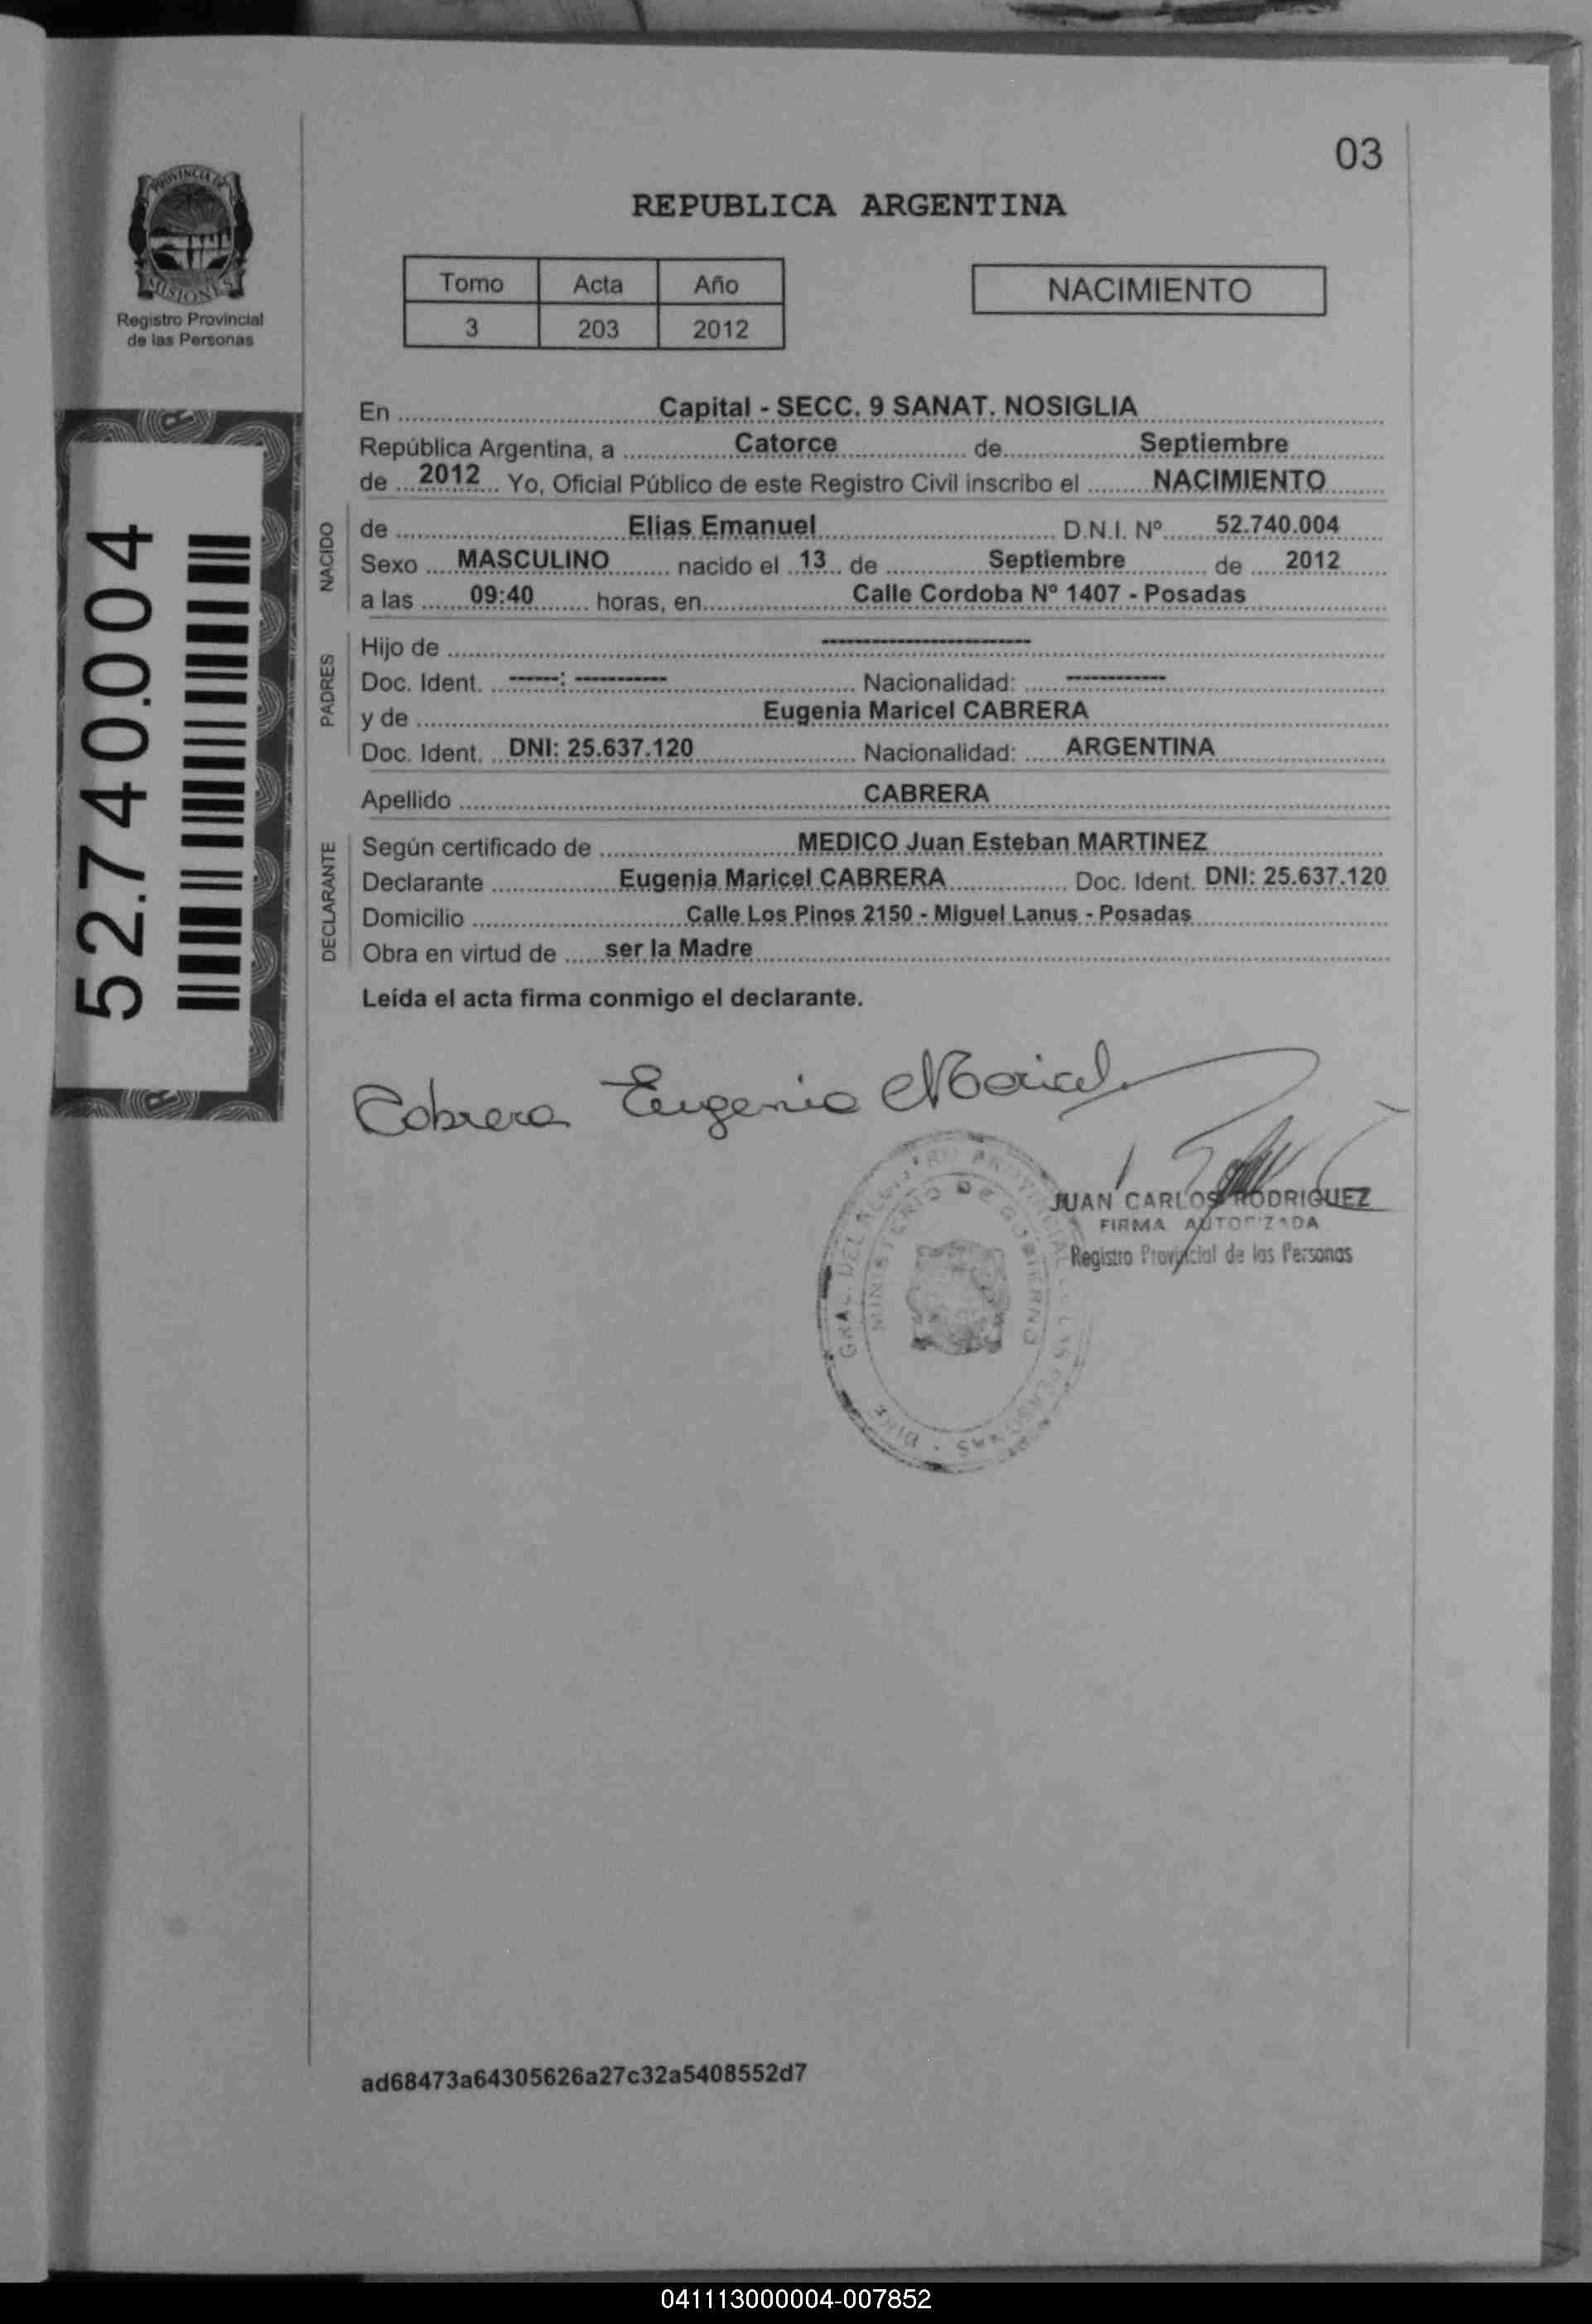 03
PROVINCIA DE
MISIONES
Registro Provincial
de las Personas
REPUBLICA ARGENTINA
Tomo Acta Año
3 203 2012
NACIMIENTO
52.740.004
En Capital - SECC. 9 SANAT. NOSIGLIA
República Argentina, a Catorce de Septiembre
de 2012 Yo, Oficial Público de este Registro Civil inscribo el NACIMIENTO
NACIDO
de Elias Emanuel D.N.I. Nº 52.740.004
Sexo MASCULINO nacido el 13 de Septiembre de 2012
a las 09:40 horas, en Calle Cordoba Nº 1407 - Posadas
PADRES
Hijo de -----------------------
Doc. Ident. ------: ---------- Nacionalidad: -----------
y de Eugenia Maricel CABRERA
Doc. Ident. DNI: 25.637.120 Nacionalidad: ARGENTINA
Apellido CABRERA
DECLARANTE
Según certificado de MEDICO Juan Esteban MARTINEZ
Declarante Eugenia Maricel CABRERA Doc. Ident. DNI: 25.637.120
Domicilio Calle Los Pinos 2150 - Miguel Lanus - Posadas
Obra en virtud de ser la Madre
Leída el acta firma conmigo el declarante.
Cabrera Eugenia Maricel
JUAN CARLOS RODRIGUEZ
FIRMA AUTORIZADA
Registro Provincial de las Personas
MINISTERIO DE GOBIERNO
ad68473a64305626a27c32a5408552d7
041113000004-007852